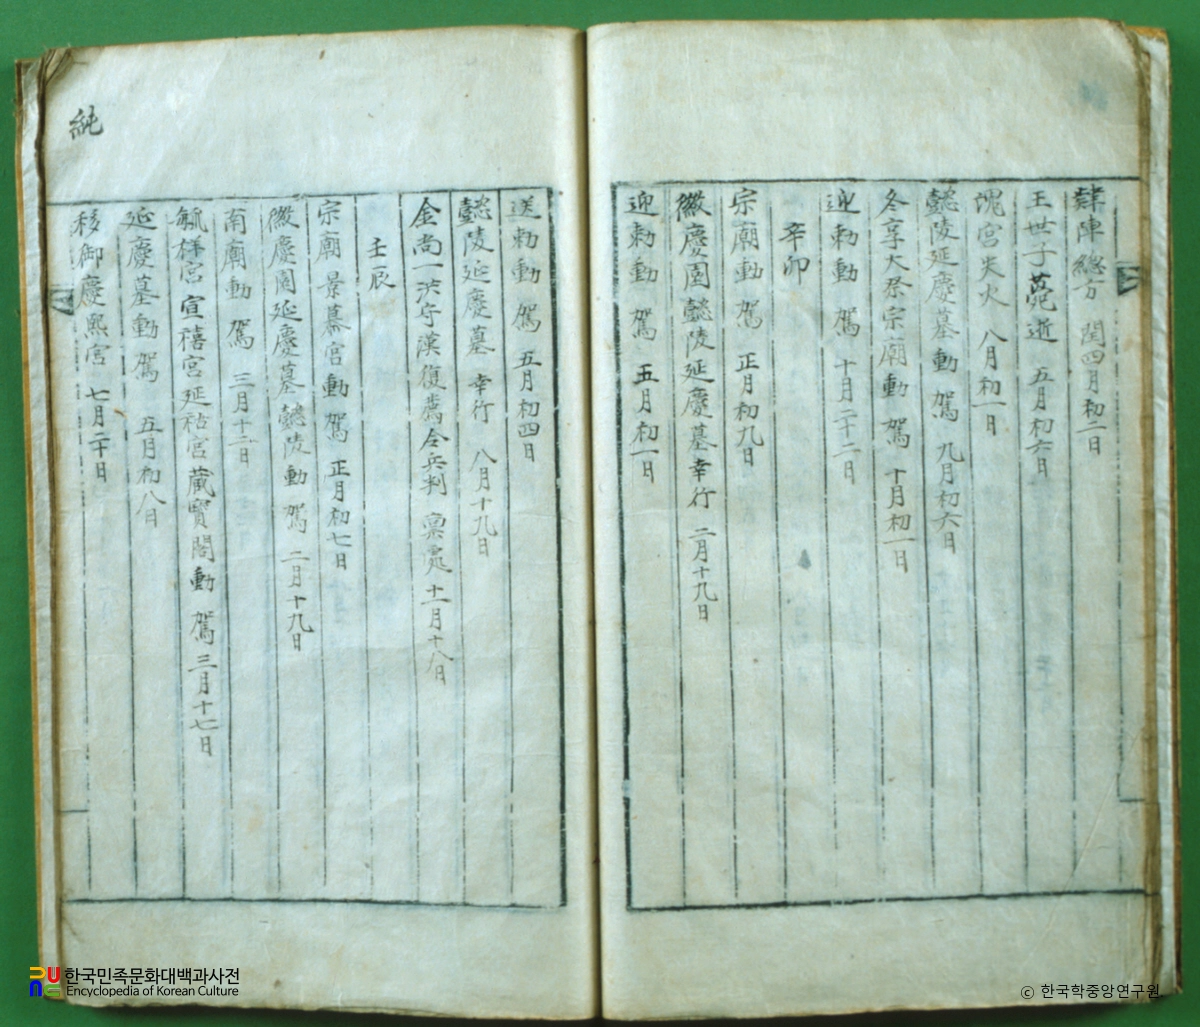 肄陣總方 閏四月初二日
王世子薨逝 五月初六日
魂宮失火 八月初一日
懿陵延慶墓動 駕 九月初六日
冬享大祭宗廟動 駕 十月初一日
迎勅動 駕 十月二十二日
辛卯
宗廟動 駕 正月初九日
徽慶園懿陵延慶墓幸行 二月十九日
迎勅動 駕 五月初一日
送勅動 駕 五月初四日
懿陵延慶墓 幸行 八月十九日
金尚一 守漢復薦令兵判 稟處 十一月十八日
壬辰
宗廟 景慕宮動 駕 正月初七日
徽慶園延慶墓懿陵動 駕 二月十九日
南廟動 駕 三月十二日
毓祥宮宣禧宮延祜宮藏寶閣動 駕 三月十七日
延慶墓動駕 五月初八日
移御慶熙宮 七月二十日
純
한국민족문화대백과사전
Encyclopedia of Korean Culture
ⓒ 한국학중앙연구원